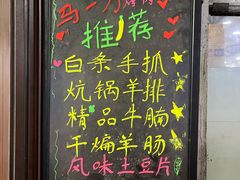 马一刀烤肉
推荐
白条手抓
炕锅羊排
精品牛腩
干煸羊肠
风味土豆片